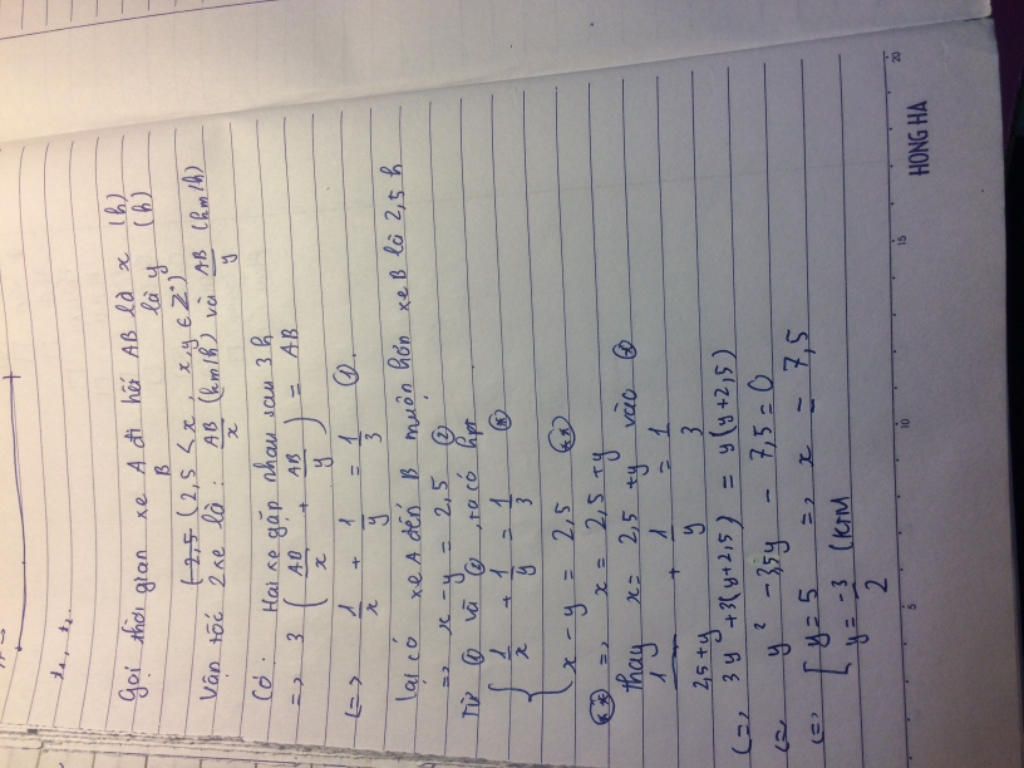 t₁, t₂
Gọi thời gian xe A đi hết AB là x (h)
B là y (h)
(2,5 < x, x,y ∈ Z⁺)
Vận tốc 2 xe là: AB/x (km/h) và AB/y (km/h)
Có: Hai xe gặp nhau sau 3h
=> 3 (AB/x + AB/y) = AB
(=> 1/x + 1/y = 1/3 ①.
Lại có xe A đến B muộn hơn xe B là 2,5 h
=> x - y = 2,5 ②
Từ ① và ②, ta có hpt
{ 1/x + 1/y = 1/3 (*)
x - y = 2,5 (**)
(**) => x = 2,5 + y
thay x = 2,5 + y vào (*)
1/(2,5+y) + 1/y = 1/3
(=> 3y + 3(y+2,5) = y(y+2,5)
(=> y² - 3,5y - 7,5 = 0
(=> [ y = 5 => x = 7,5
y = -3/2 (KTM)
5 10 15 20
HONG HA